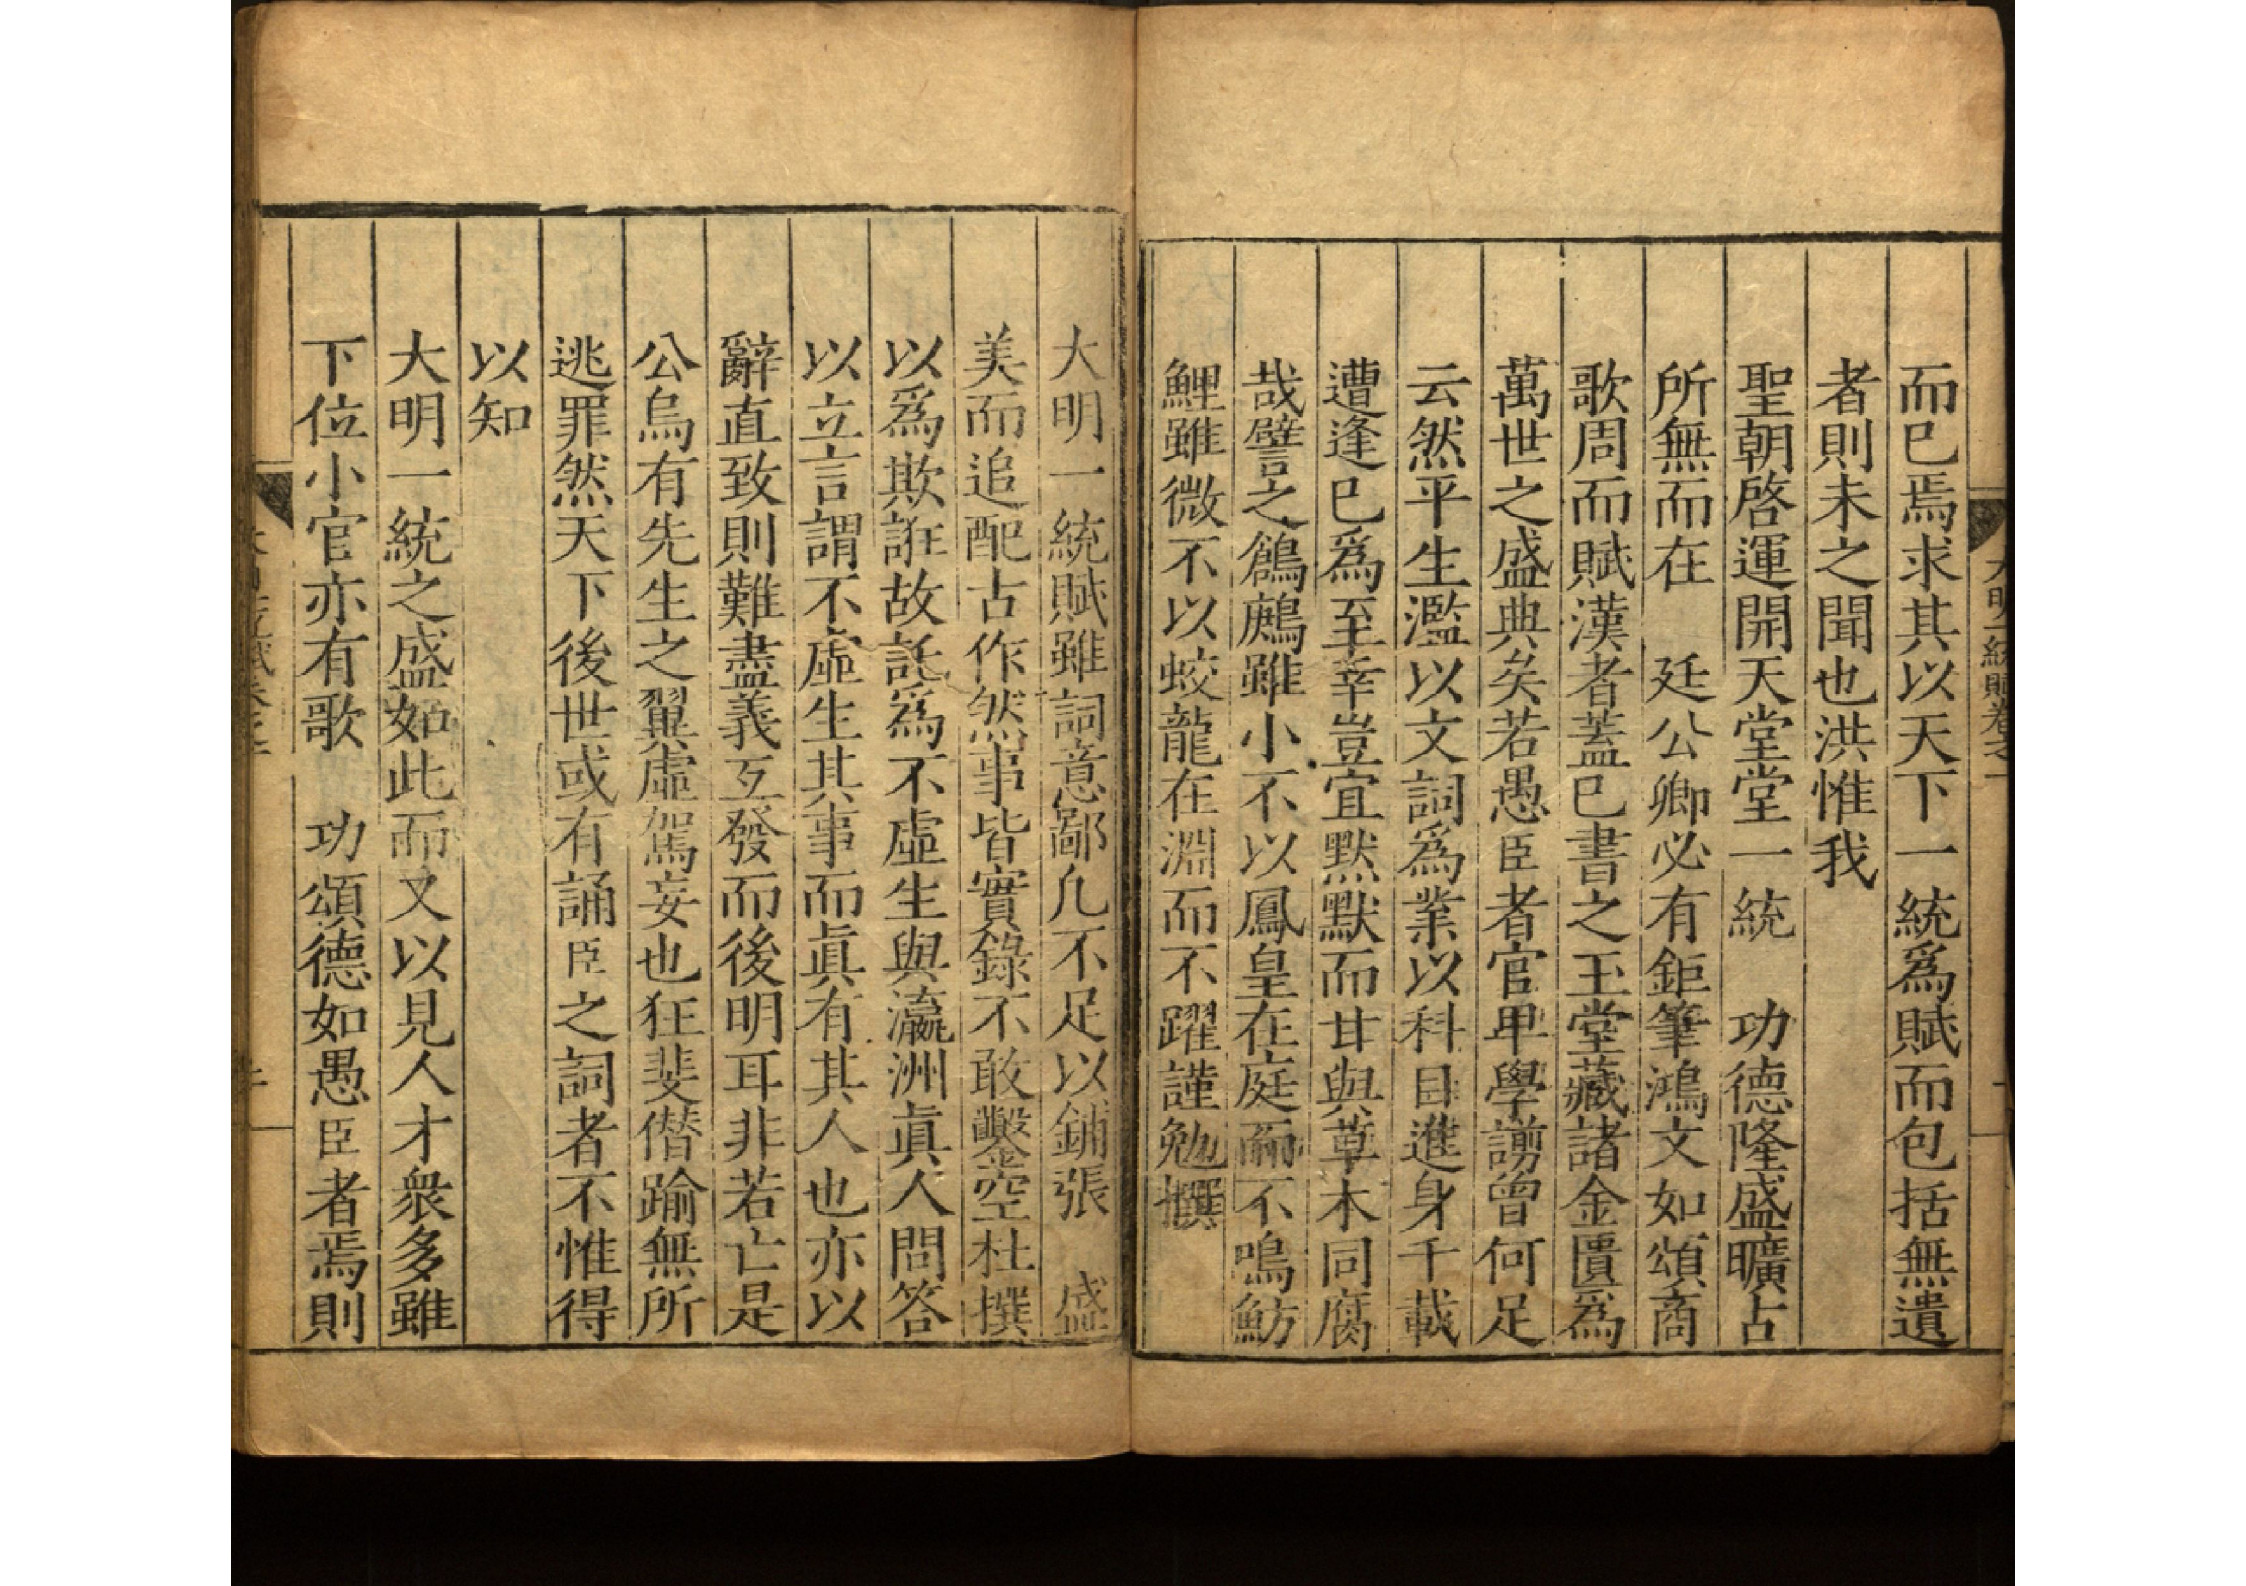 而已焉求其以天下一統爲賦而包括無遺
者則未之聞也洪惟我
聖朝啓運開天堂堂一統　功德隆盛曠占
所無而在　廷公卿必有鉅筆鴻文如頌商
歌周而賦漢者蓋已書之玉堂藏諸金匱爲
萬世之盛典矣若愚臣者官卑學謭曾何足
云然平生濫以文詞爲業以科目進身千載
遭逢已爲至幸豈宜默默而甘與草木同腐
哉譬之鶬鶊雖小不以鳳皇在庭而不鳴魴
鯉雖微不以蛟龍在淵而不躍謹勉撰
大明一統賦雖詞意鄙凡不足以鋪張　盛
美而追配古作然事皆實錄不敢鑿空杜撰
以爲欺誑故託爲不虛生與瀛洲眞人問答
以立言謂不虛生其事而眞有其人也亦以
辭直致則難盡義互發而後明耳非若亡是
公烏有先生之翼虛駕妄也狂斐僭踰無所
逃罪然天下後世或有誦臣之詞者不惟得
以知
大明一統之盛如此而又以見人才衆多雖
下位小官亦有歌　功頌德如愚臣者焉則
大明一統賦卷之